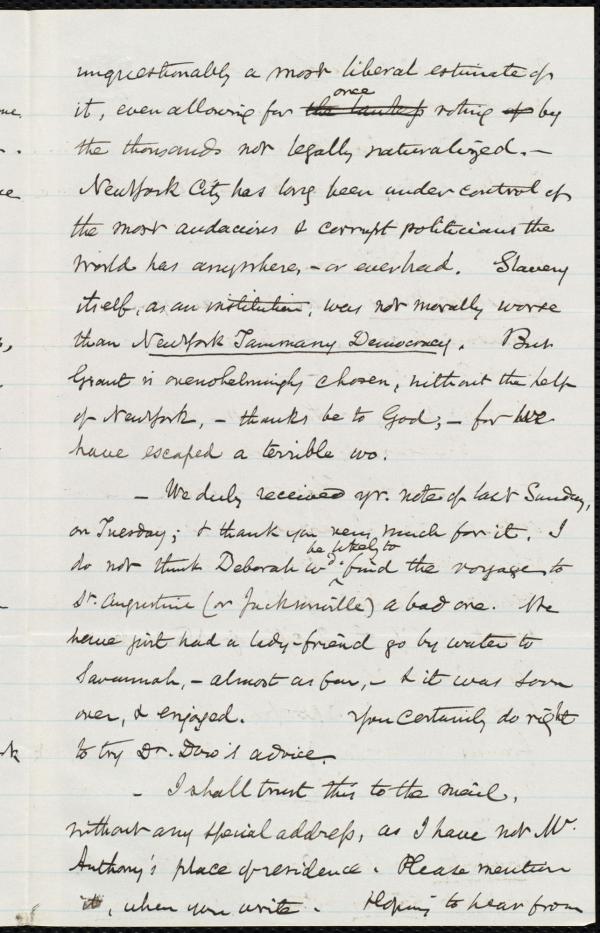 unquestionably a most liberal estimate of
it, even allowing for the once voting of by
the thousands not legally naturalized. —
New York City has long been under control of
the most audacious & corrupt politicians the
world has anywhere, – or ever had. Slavery
itself, as an institution, was not morally worse
than New York Tammany Democracy. But
Grant is overwhelmingly chosen, without the help
of New York, – thanks be to God, – for we
have escaped a terrible wo.
– We duly received yr. note of last Sunday,
on Tuesday; & thank you very much for it. I
be likely to
do not think Deborah wd. find the voyage to
St. Augustine (or Jacksonville) a bad one. We
have just had a lady-friend go by water to
Savannah, – almost as far, – & it was soon
over, & enjoyed. You certainly do right
to try Dr. Dow's advice.
– I shall trust this to the mail,
without any special address, as I have not Mr.
Anthony's place of residence. Please mention
it, when you write. Hoping to hear from